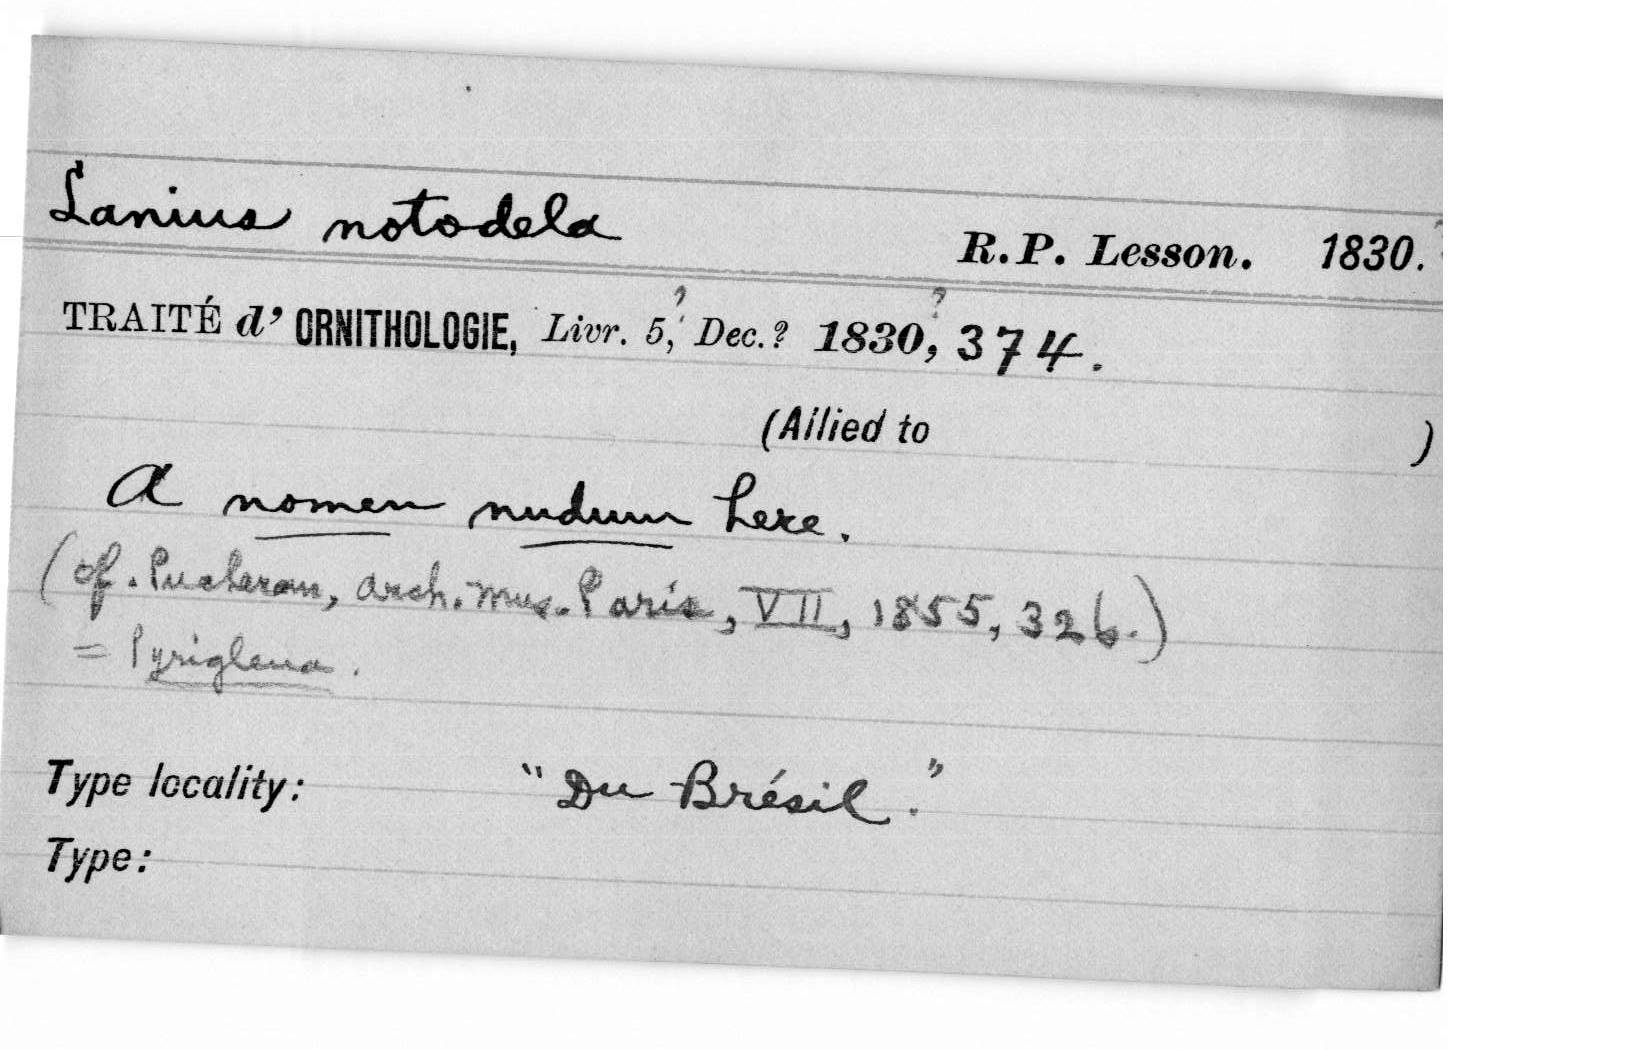 Lanius notodela R.P. Lesson. 1830.
? ?
TRAITÉ d' ORNITHOLOGIE, Livr. 5, Dec.? 1830, 374.
(Allied to )
A nomen nudum here.
(Cf. Pucheran, Arch. Mus. Paris, VII, 1855, 326.)
= Pyriglena.
Type locality: "Du Brésil."
Type: